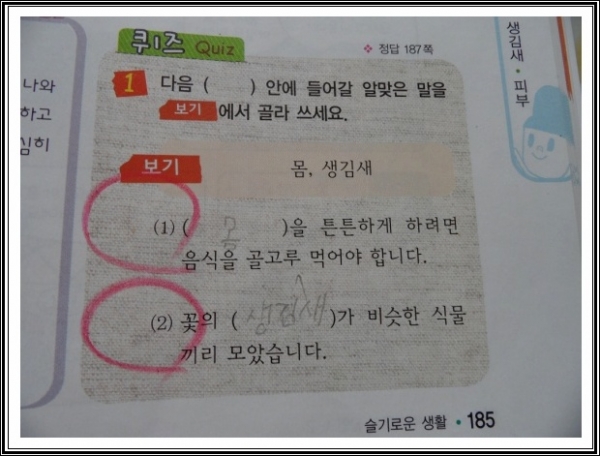 퀴즈 Quiz
❖ 정답 187쪽
1 다음 ( ) 안에 들어갈 알맞은 말을
보기 에서 골라 쓰세요.
보기 몸, 생김새
(1) ( 몸 )을 튼튼하게 하려면
음식을 골고루 먹어야 합니다.
(2) 꽃의 ( 생김새 )가 비슷한 식물
끼리 모았습니다.
슬기로운 생활 • 185
생김새 • 피부
나와
하고
심히